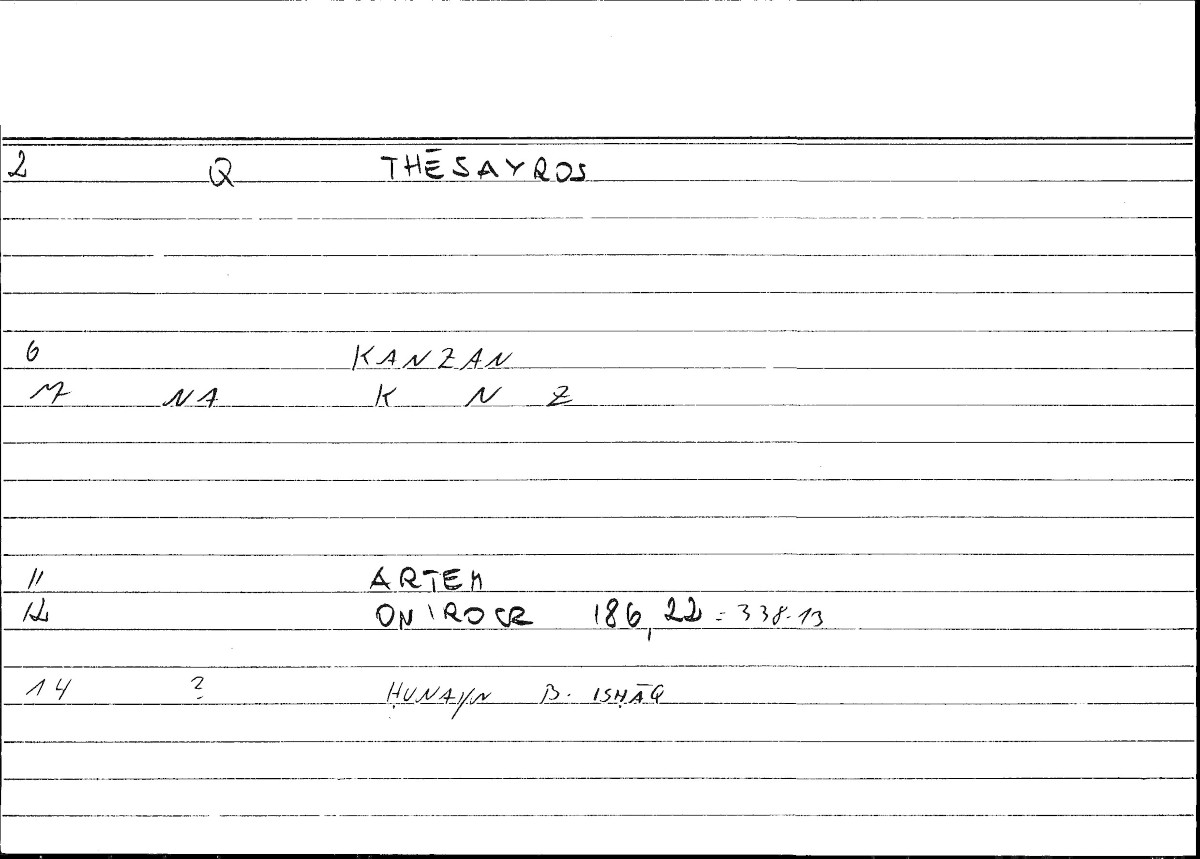 2 Q THĒSAYROS
6 KANZAN
7 NA K N Z
11 ARTEM
12 ONIROCR 186,22 = 338.13
14 ? ḤUNAYN B. ISḤĀQ